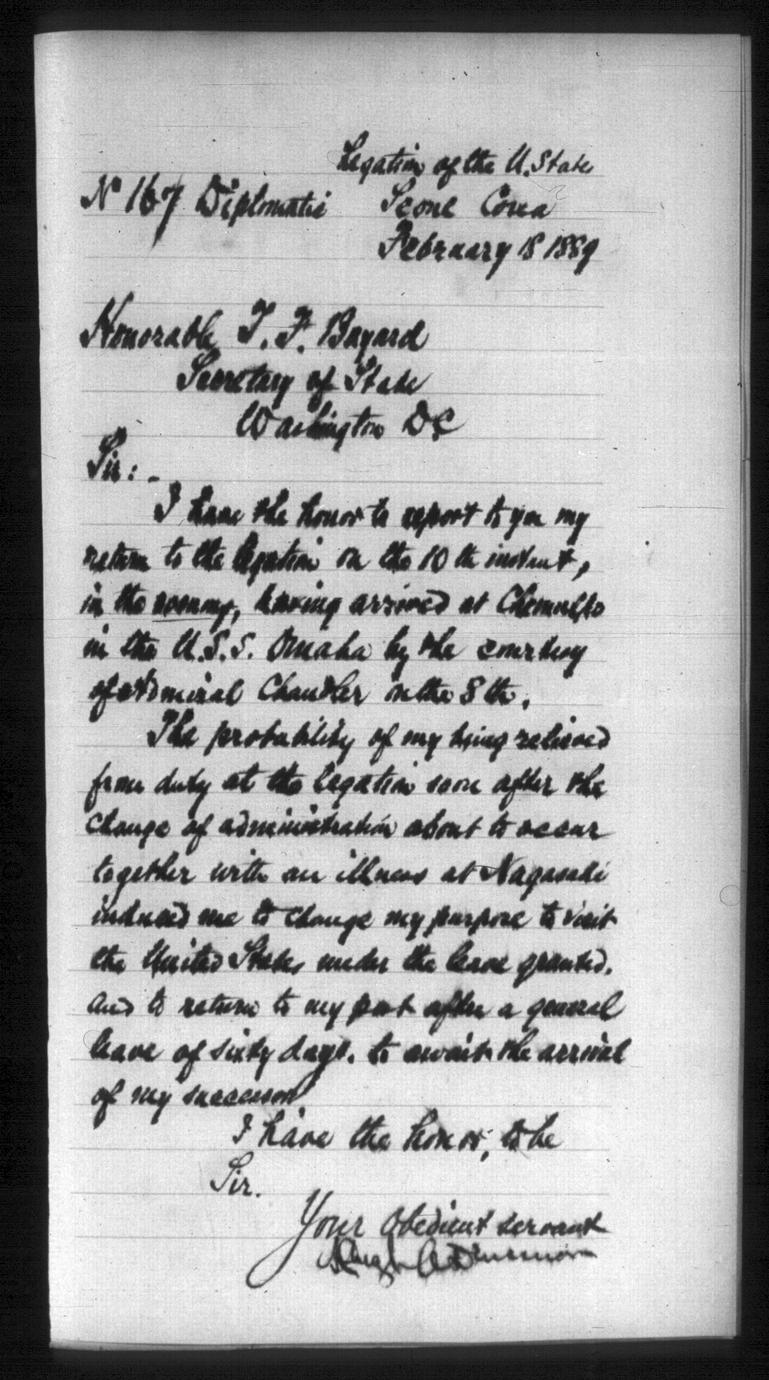 Legation of the U. States
Nº 167 Diplomatic Seoul Corea
February 18 1889
Honorable T. F. Bayard
Secretary of State
Washington DC
Sir: -
I have the honor to report to you my
return to the legation on the 10 th instant,
in the evening, having arrived at Chemulpo
in the U.S.S. Omaha by the courtesy
of Admiral Chandler on the 8 th.
The probability of my being relieved
from duty at the legation soon after the
change of administration about to occur
together with an illness at Nagasaki
induced me to change my purpose to visit
the United States under the leave granted.
and to return to my post after a general
leave of sixty days. to await the arrival
of my successor
I have the honor, to be
Sir.
Your obedient servant
Hugh A Dinsmore